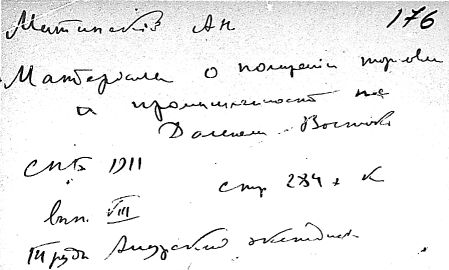 Митинский Ан 176
Материалы о положении торговли
и промышленности на
Дальнем Востоке
СПБ 1911
стр 284 + К
вып. VIII
Труды Амурской экспедиции